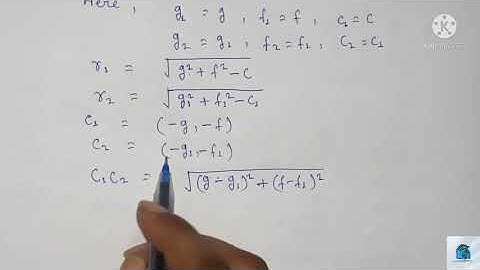 Here, g₁ = g, f₁ = f, c₁ = c
g₂ = g₁, f₂ = f₁, c₂ = c₁
r₁ = √(g² + f² - c)
r₂ = √(g₁² + f₁² - c₁)
C₁ = (-g, -f)
C₂ = (-g₁, -f₁)
C₁C₂ = √((g - g₁)² + (f - f₁)²)